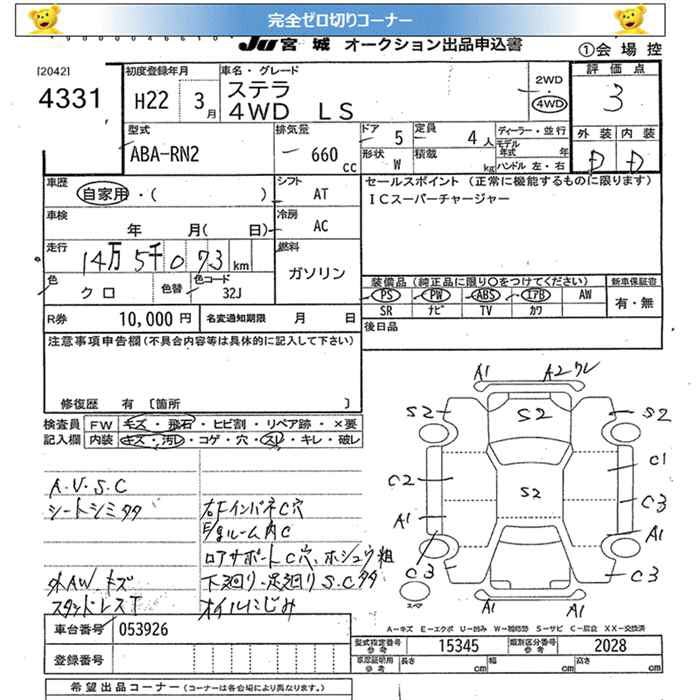 完全ゼロ切りコーナー
JU 宮城 オークション出品申込書
①会場控
[2042]
4331
初度登録年月
H22 3月
車名・グレード
ステラ
4WD LS
2WD
4WD
評価点
3
外装 内装
D D
型式
ABA-RN2
排気量
660 CC
ドア 5
定員 4人
形状 W
積載 kg
ディーラー・並行
モデル年式 年
ハンドル 左・右
車歴
自家用・( )
シフト
AT
セールスポイント (正常に機能するものに限ります)
ICスーパーチャージャー
車検
年 月( 日)
冷房
AC
走行
14万5千073km
燃料
ガソリン
色
クロ
色替
色コード
32J
装備品 (純正品に限り○をつけてください)
PS PW ABS エアB AW
SR ナビ TV カワ
新車保証書
有・無
R券 10,000円
名変通知期限 月 日
後日品
注意事項申告欄(不具合内容等は具体的に記入して下さい)
修復歴 有 〔箇所 〕
検査員記入欄
FW キズ・飛石・ヒビ割・リペア跡・×要
内装 キズ・汚レ・コゲ・穴・スレ・キレ・破レ
A.V.S.C
シートシミタタ
外AW キズ
スタッドレスT
右FインパネC穴
E/gルーム内C
ロアサポートC穴、ホシュウ粗
下廻り・足廻りS.Cタタ
オイルにじみ
A1 A2ワレ
S2 S2 S2
C2 S2 C1
C3
A1 A1
C3 C3
スペア
A1 A1
A－キズ E－エクボ U－凹み W－補修跡 S－サビ C－腐食 XX－交換済
車台番号 053926
登録番号
型式指定番号 参考 15345
類別区分番号 参考 2028
車庫証明用 参考 長さ cm 幅 cm 高さ cm
希望出品コーナー (コーナーは各会場により異なります。)